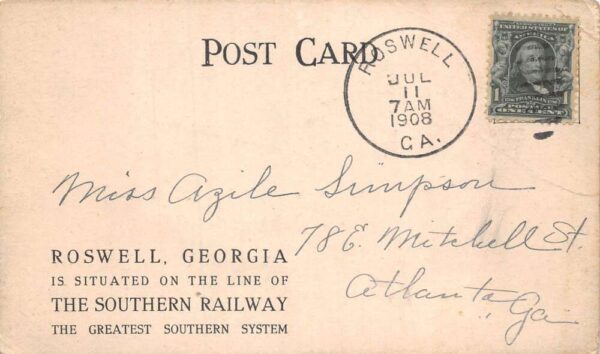 POST CARD
ROSWELL
JUL
11
7AM
1908
GA.
UNITED STATES OF
AMERICA
1
FRANKLIN
POSTAGE
ONE CENT
Miss Azile Simpson
78 E. Mitchell St.
Atlanta
Ga
ROSWELL, GEORGIA
IS SITUATED ON THE LINE OF
THE SOUTHERN RAILWAY
THE GREATEST SOUTHERN SYSTEM